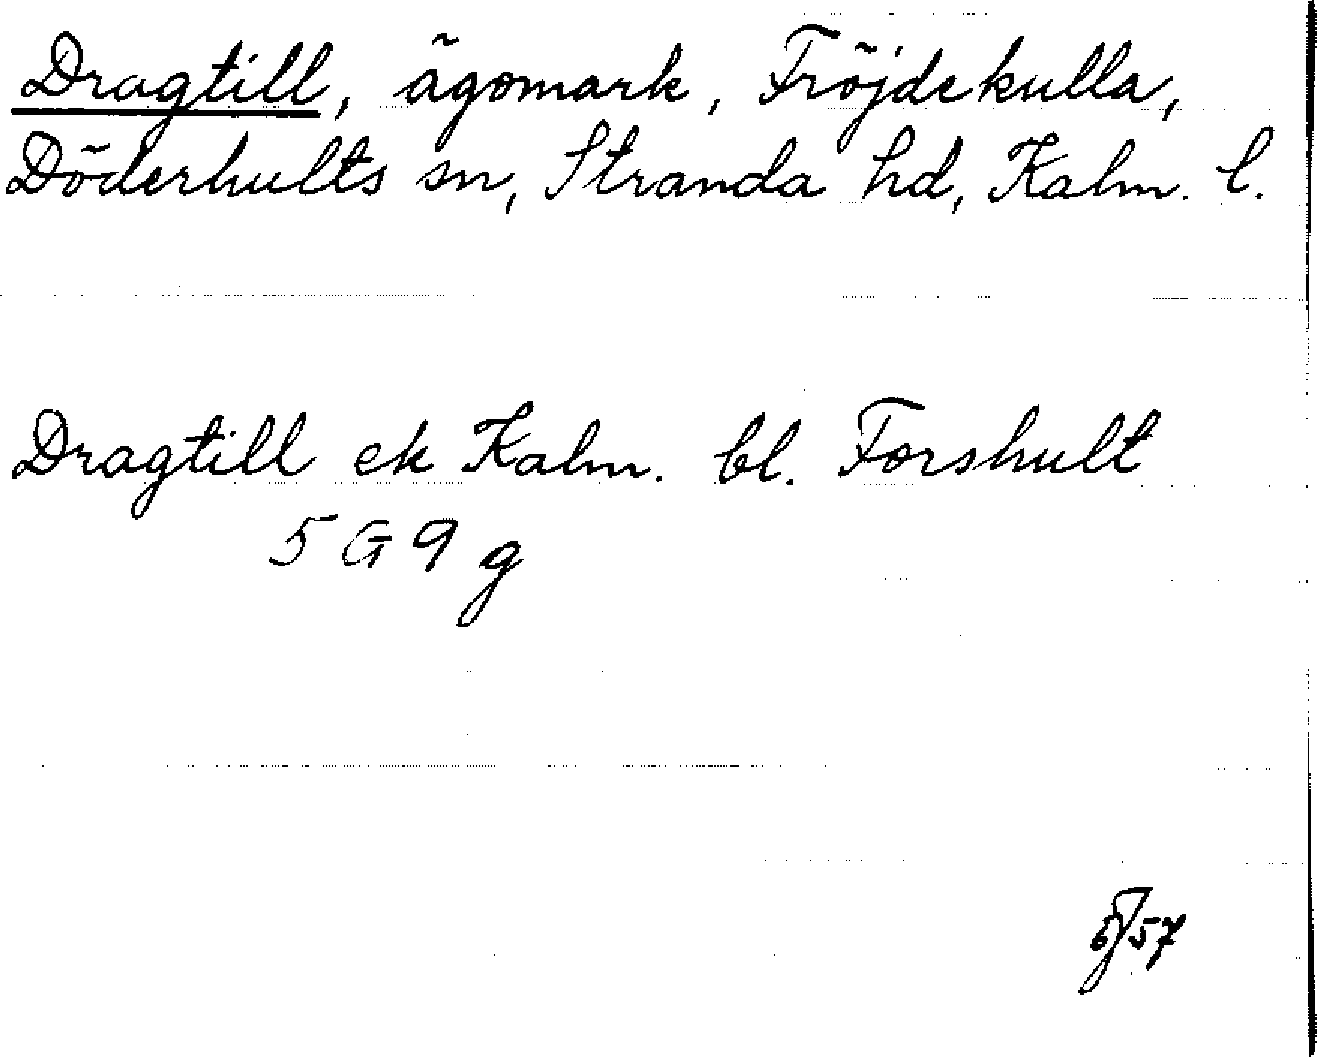 Dragtill, ägomark, Fröjdekulla,
Döderhults sn, Stranda hd, Kalm. l.
Dragtill ek Kalm. bl. Forshult
5 G 9 g
57